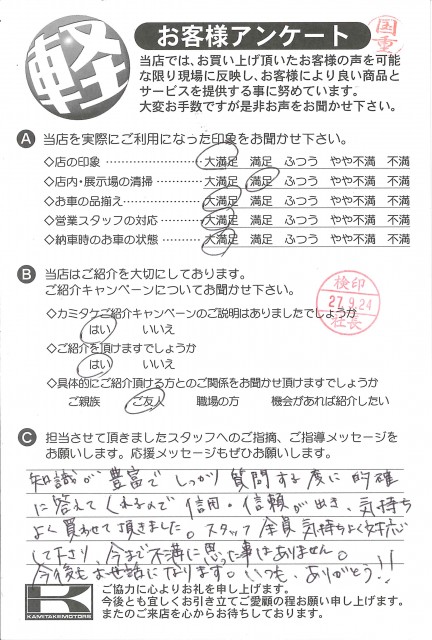 軽
お客様アンケート
国重
当店では、お買い上げ頂いたお客様の声を可能
な限り現場に反映し、お客様により良い商品と
サービスを提供する事に努めています。
大変お手数ですが是非お声をお聞かせ下さい。
A 当店を実際にご利用になった印象をお聞かせ下さい。
◇店の印象 大満足 満足 ふつう やや不満 不満
◇店内・展示場の清掃 大満足 満足 ふつう やや不満 不満
◇お車の品揃え 大満足 満足 ふつう やや不満 不満
◇営業スタッフの対応 大満足 満足 ふつう やや不満 不満
◇納車時のお車の状態 大満足 満足 ふつう やや不満 不満
B 当店はご紹介を大切にしております。
ご紹介キャンペーンについてお聞かせ下さい。
検印
27.9.24
社長
◇カミタケご紹介キャンペーンのご説明はありましたでしょうか
はい いいえ
◇ご紹介を頂けますでしょうか
はい いいえ
◇具体的にご紹介頂ける方とのご関係をお聞かせ頂けますでしょうか
ご親族 ご友人 職場の方 機会があれば紹介したい
C 担当させて頂きましたスタッフへのご指摘、ご指導メッセージを
お願いします。応援メッセージもぜひお願いします。
知識が豊富でしっかり質問する度に的確
に答えてくれるので信用・信頼が出き、気持ち
よく買わせて頂きました。スタッフ全員気持ちよく対応
して下さり、今まで不満に思った事はありません。
今後もお世話になります。いつも、ありがとう!!
K
KAMITAKE MOTORS
ご協力に心よりお礼を申し上げます。
今後とも宜しくお引き立てご愛顧の程お願い申し上げます。
またのご来店を心からお待ちしております。